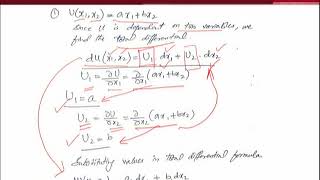 ① U(x₁,x₂) = ax₁ + bx₂
Since U is dependent on two variables, we
find the total differential.
dU(x₁,x₂) = U₁ · dx₁ + U₂ · dx₂
U₁ = ∂U/∂x₁ = ∂/∂x₁ (ax₁+bx₂)
U₁ = a
U₂ = ∂U/∂x₂ = ∂/∂x₂ (ax₁+bx₂)
U₂ = b
Substituting values in total differential formula
a dx₁ + b dx₂